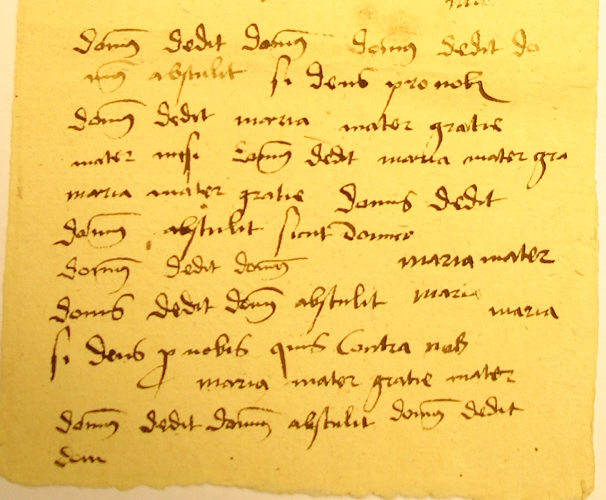 domũs dedit domũs domũs dedit do
mũs abstulit si deus pro nob
domũs dedit maria mater gratie
mater misi domũs dedit maria mater gra
maria mater gratie domus dedit
domũs abstulit sicut domno
domũs dedit domũs maria mater
domus dedit domũs abstulit maria maria
si deus p nobis quis Contra nob
maria mater gratie mater
domũs dedit domũs abstulit domũs dedit
dom